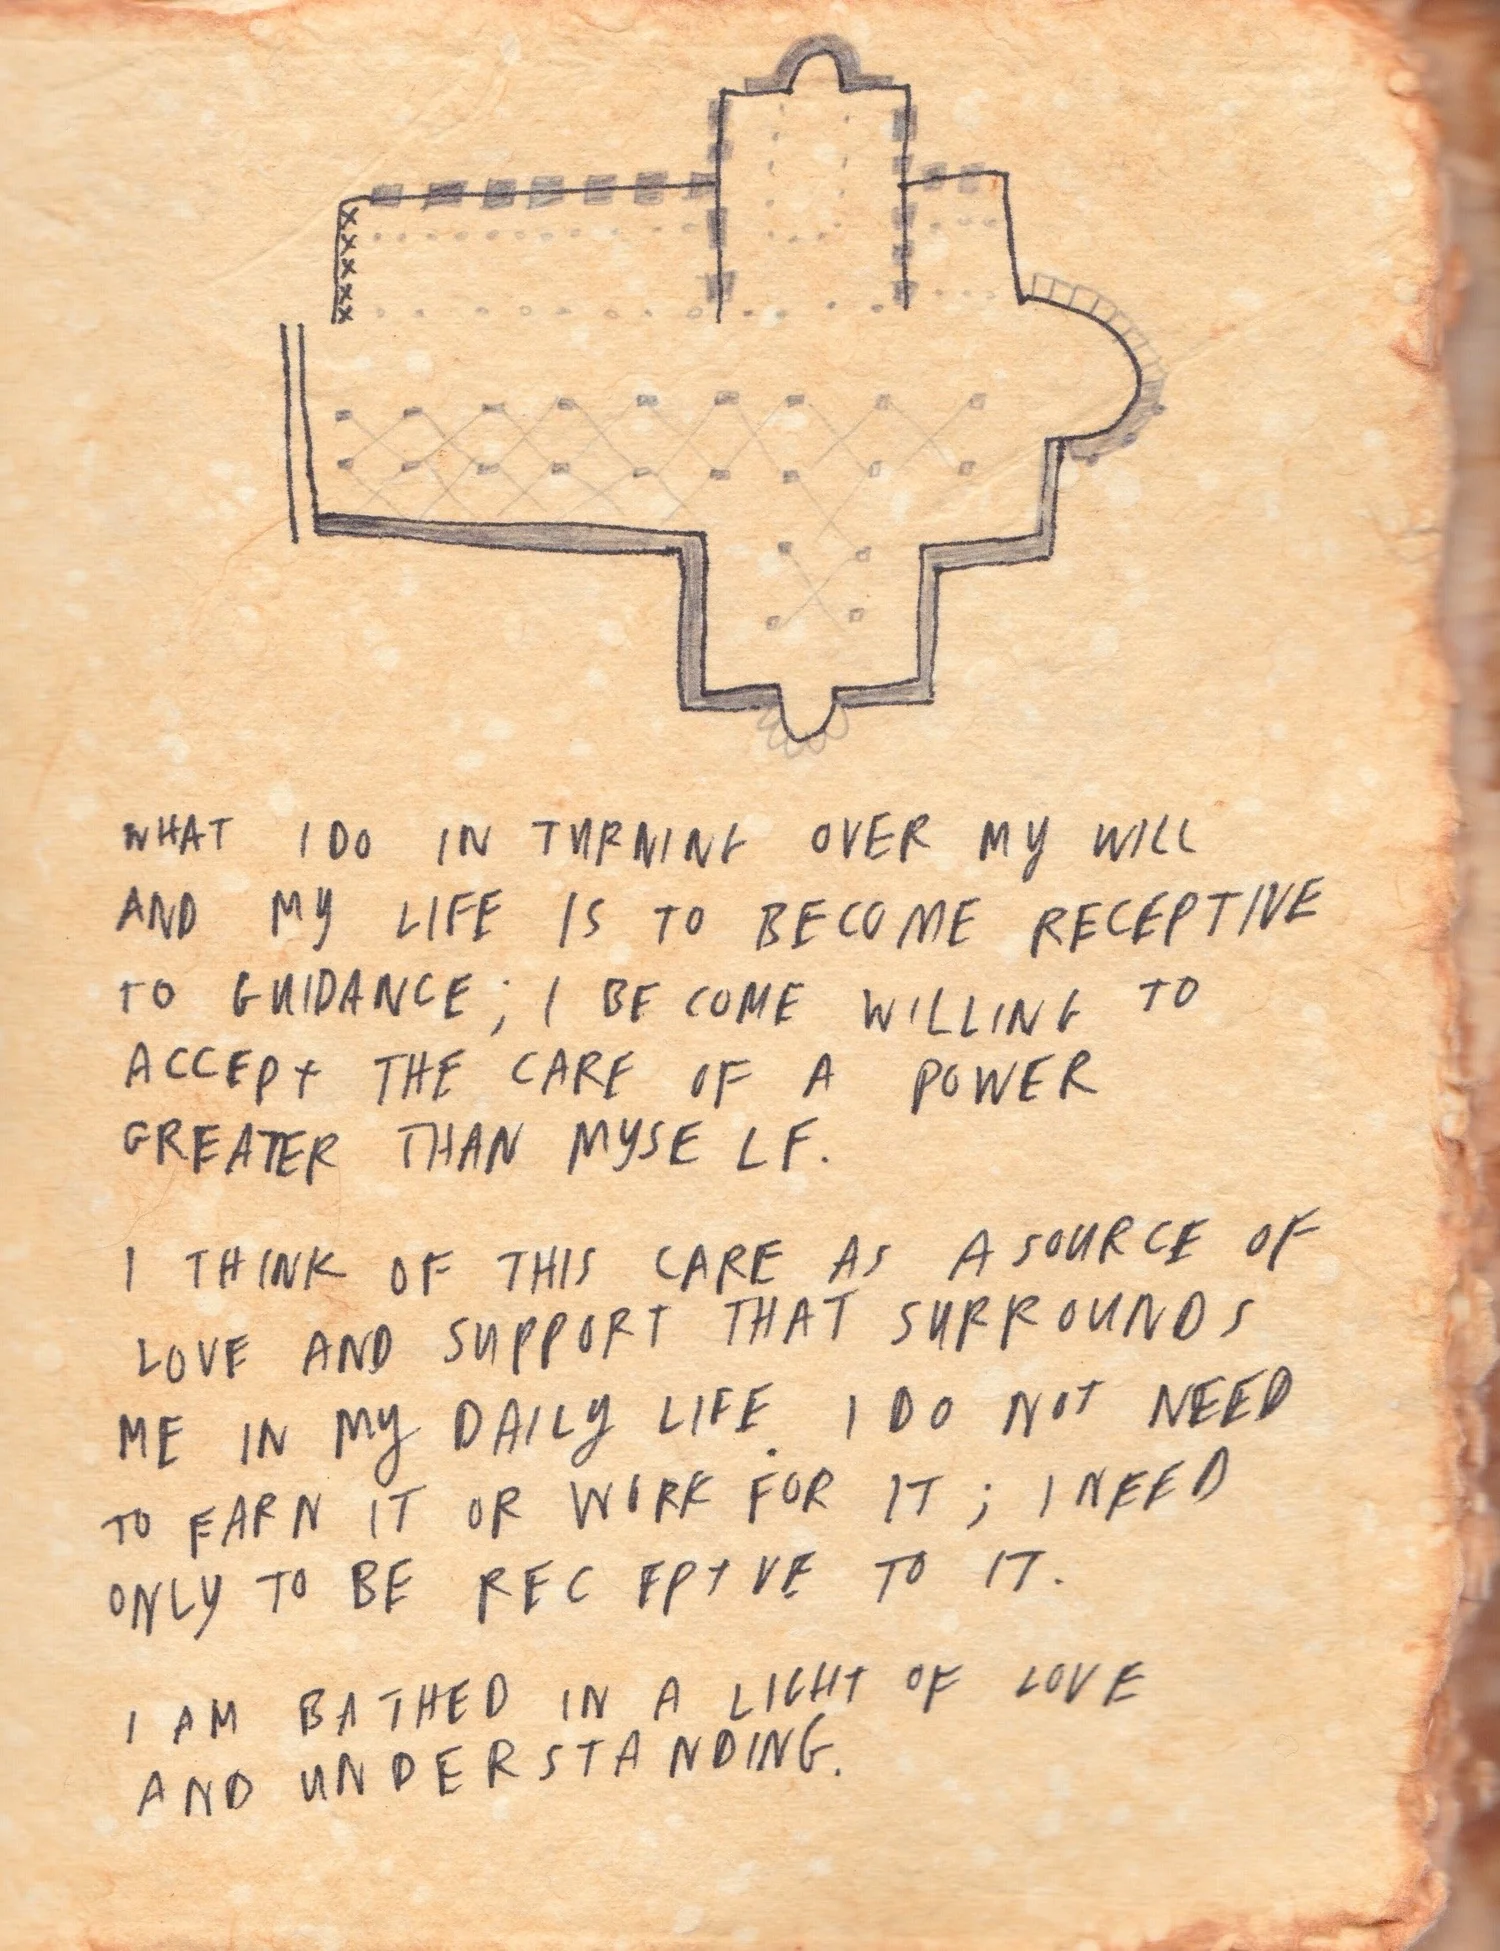 WHAT I DO IN TURNING OVER MY WILL
AND MY LIFE IS TO BECOME RECEPTIVE
TO GUIDANCE; I BECOME WILLING TO
ACCEPT THE CARE OF A POWER
GREATER THAN MYSELF.
I THINK OF THIS CARE AS A SOURCE OF
LOVE AND SUPPORT THAT SURROUNDS
ME IN MY DAILY LIFE. I DO NOT NEED
TO EARN IT OR WORK FOR IT; I NEED
ONLY TO BE RECEPTVE TO IT.
I AM BATHED IN A LIGHT OF LOVE
AND UNDERSTANDING.